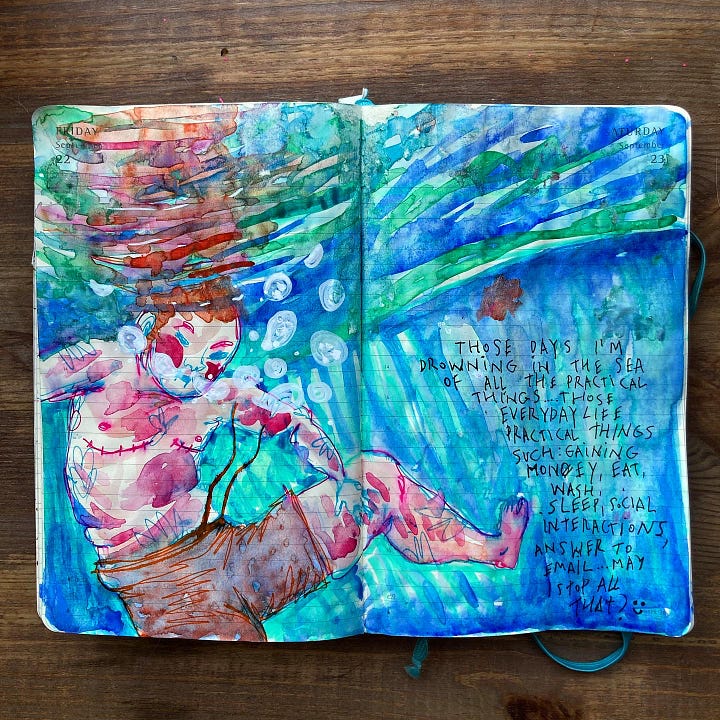 FRIDAY
September
22
SATURDAY
September
23
THOSE DAYS I'M
DROWNING IN THE SEA
OF ALL THE PRACTICAL
THINGS...THOSE
EVERYDAY LIFE
PRACTICAL THINGS
SUCH: GAINING
MONEY, EAT,
WASH,
SLEEP, SOCIAL
INTERACTIONS,
ANSWER TO
EMAIL...MAY
I STOP ALL
THAT?